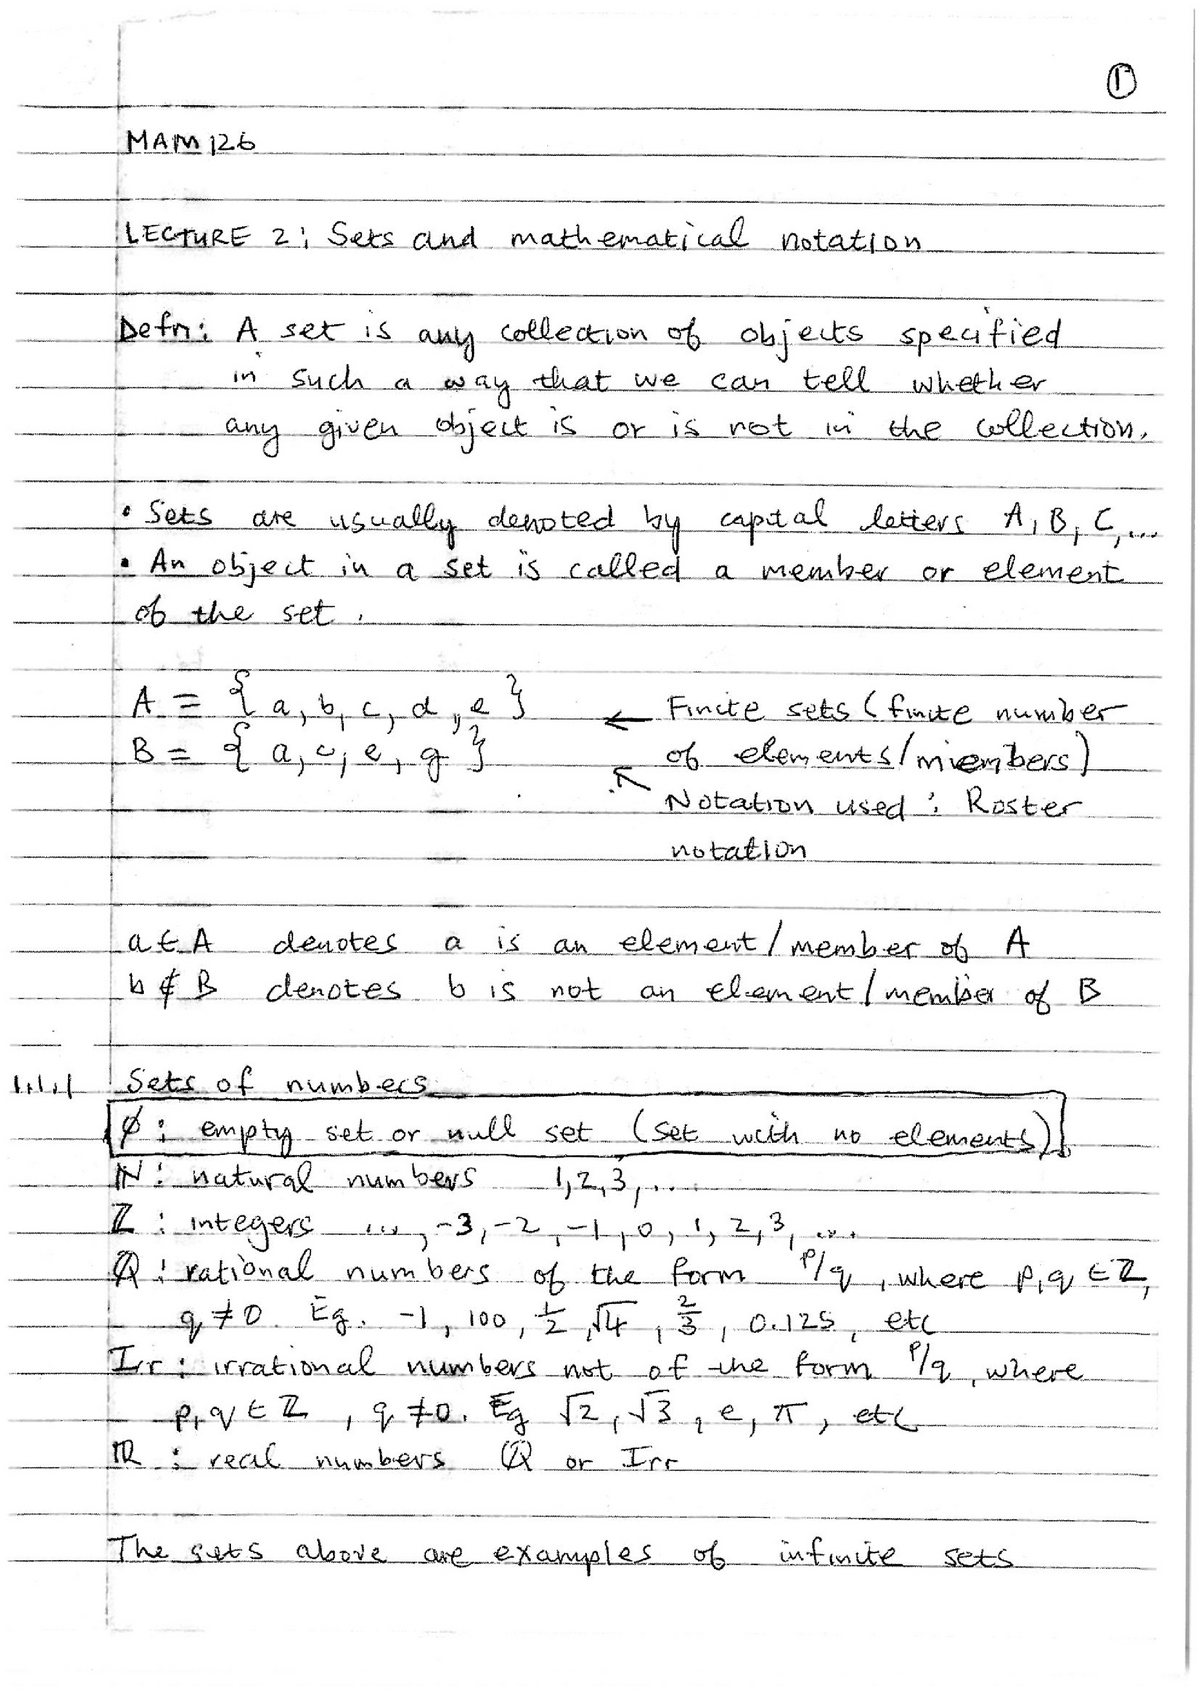 ①
MAM 126
LECTURE 2: Sets and mathematical notation
Defn: A set is any collection of objects specified
in such a way that we can tell whether
any given object is or is not in the collection.
• Sets are usually denoted by capital letters A, B, C, ...
• An object in a set is called a member or element
of the set.
A = {a, b, c, d, e} ← Finite sets (finite number
B = {a, c, e, g} of elements/members)
↖ Notation used: Roster
notation
a ∈ A denotes a is an element/member of A
b ∉ B denotes b is not an element/member of B
1.1.1 Sets of numbers
∅: empty set or null set (set with no elements)
ℕ: natural numbers 1, 2, 3, ...
ℤ: integers ..., -3, -2, -1, 0, 1, 2, 3, ...
ℚ: rational numbers of the form p/q, where p, q ∈ ℤ,
q ≠ 0. Eg. -1, 100, 1/2, √4, 2/3, 0.125, etc
Irr: irrational numbers not of the form p/q, where
p, q ∈ ℤ, q ≠ 0. Eg √2, √3, e, π, etc
ℝ: real numbers ℚ or Irr
The sets above are examples of infinite sets